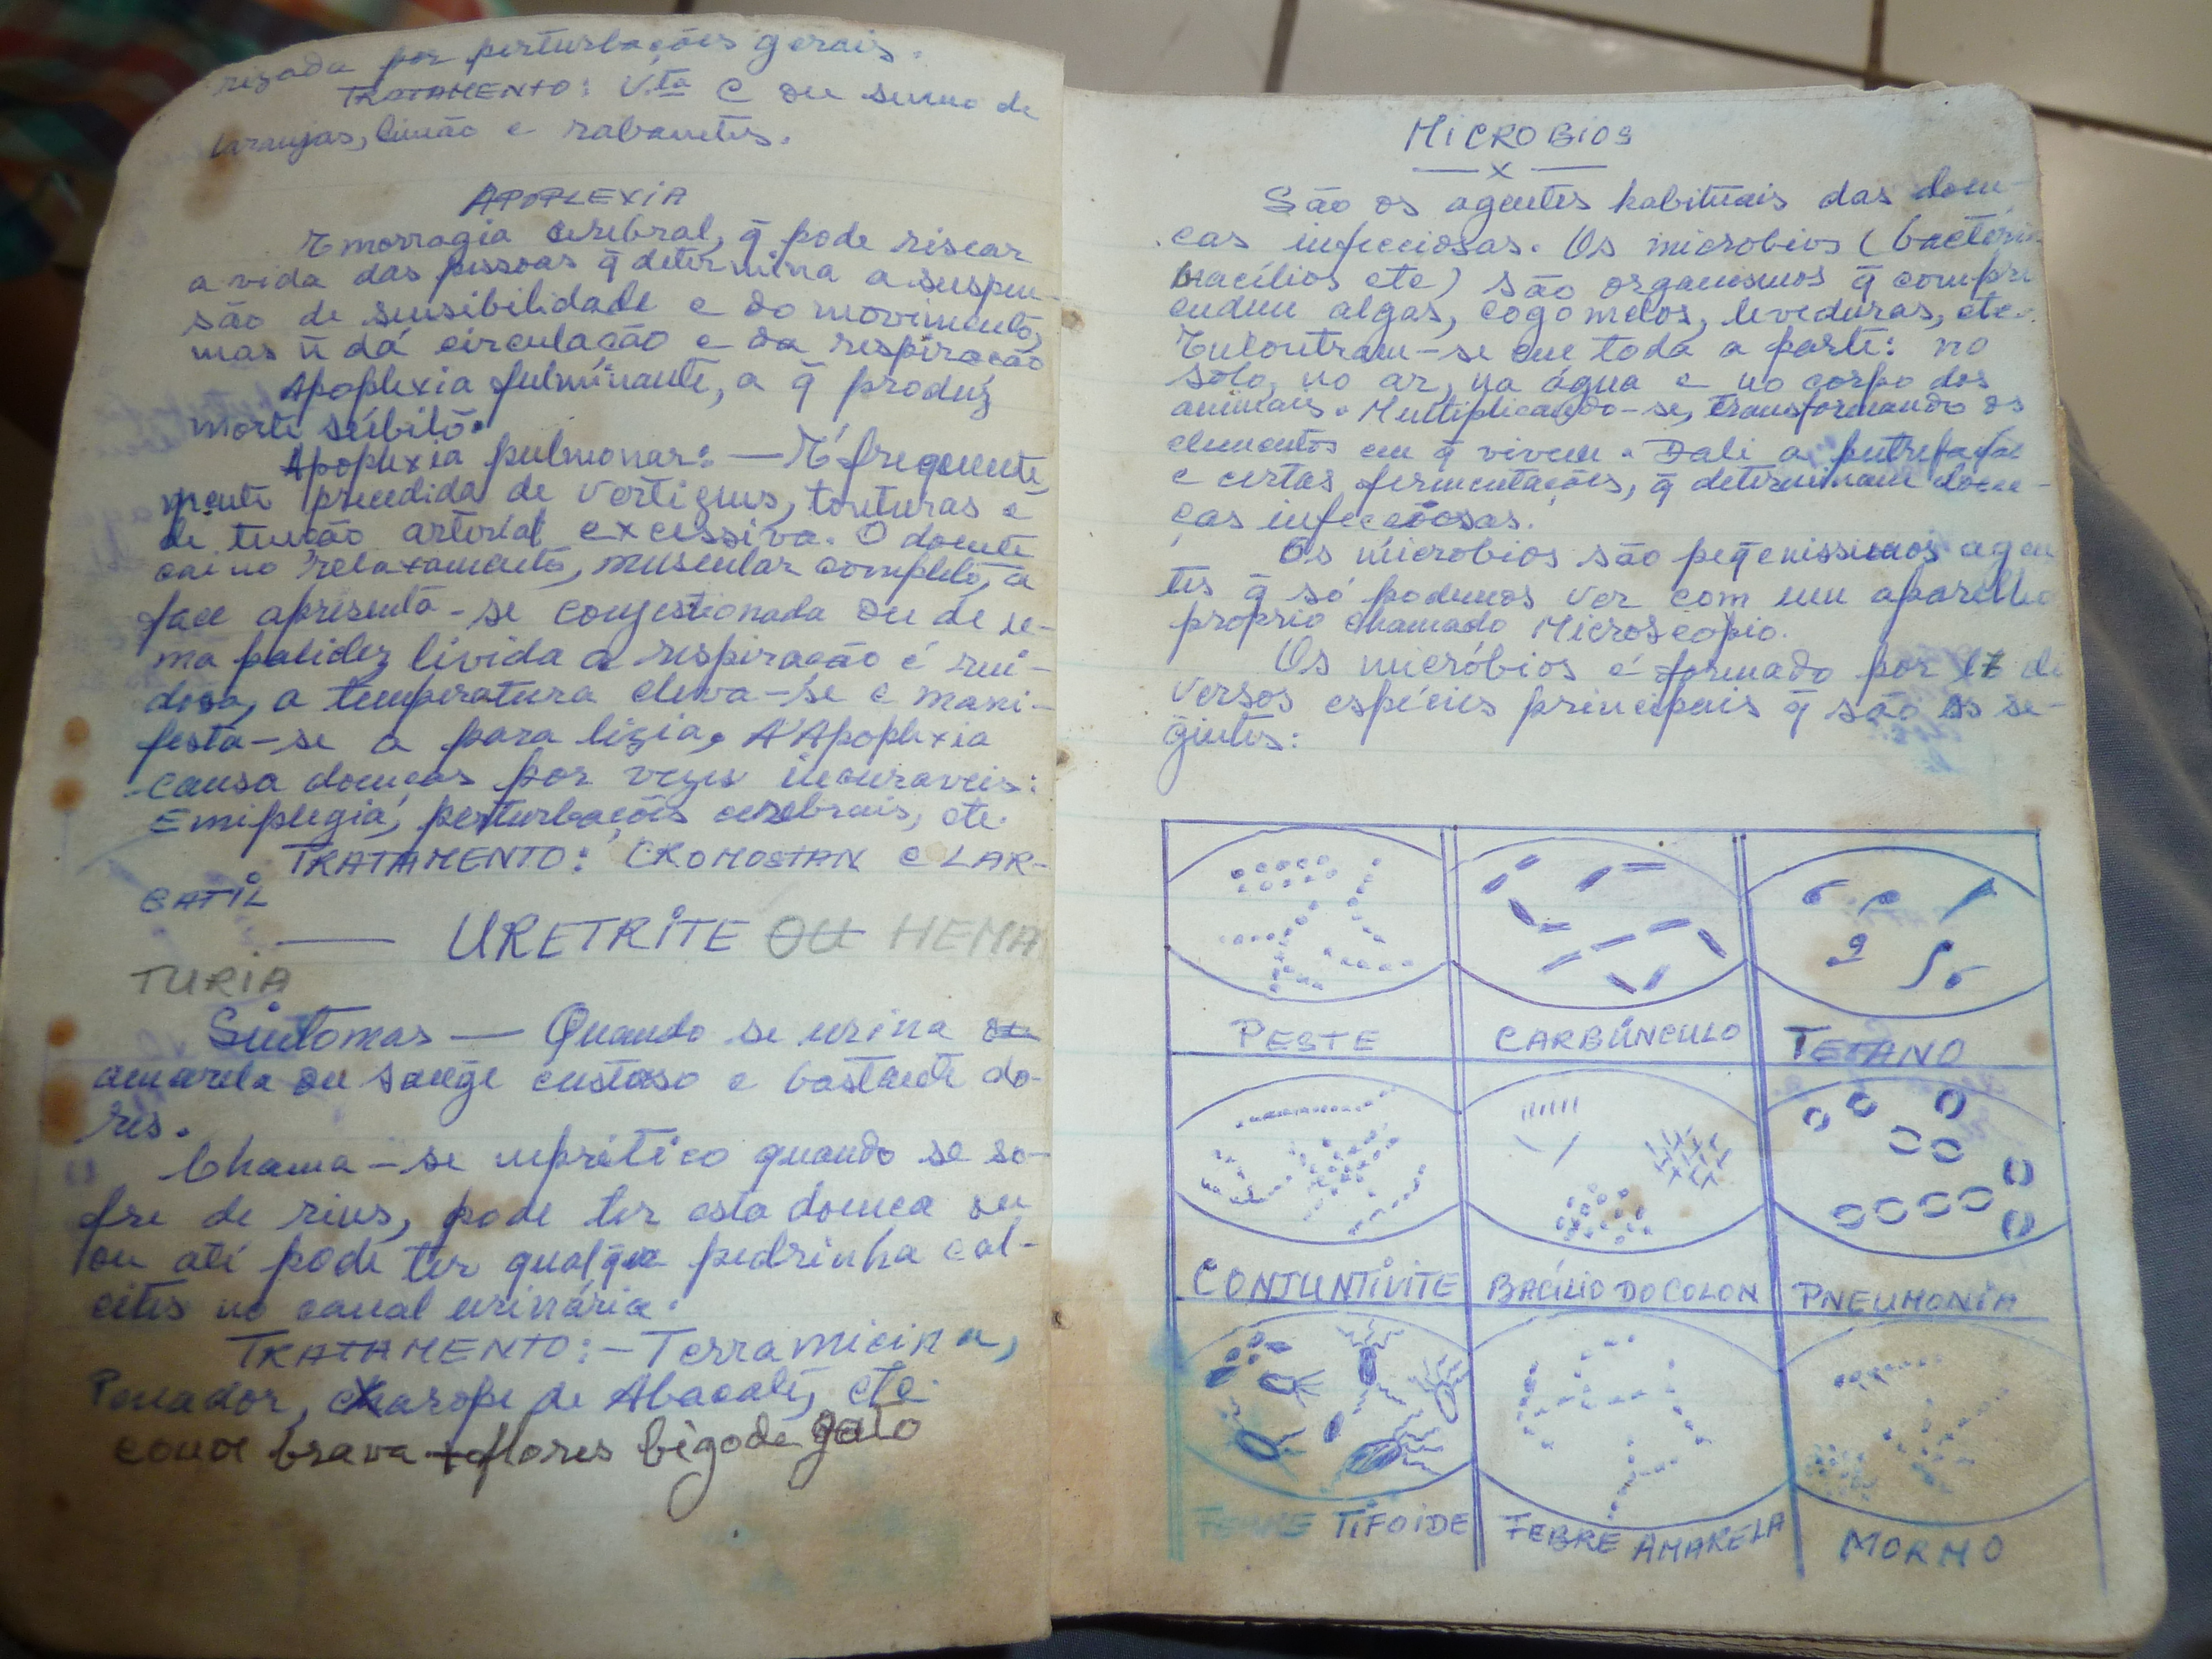 rizada por perturbações gerais.
TRATAMENTO: V.ta C ou sumo de
laranjas, limão e rabanetes.
APOPLEXIA
Emorragia cerebral, q̄ pode riscar
a vida das pessoas q̄ determina a suspen-
são de sensibilidade e do movimento,
mas ñ dá circulação e da respiração
Apoplexia fulminante, a q̄ produz
morte súbito.
Apoplexia pulmonar: — É frequente
mente precedida de vertigens, tonturas e
de tenção arterial excessiva. O doente
cai no relaxamento, muscular completo, a
face apresenta-se congestionada ou de u-
ma palidez livida a respiração é rui-
dosa, a temperatura eleva-se e mani-
festa-se a para lizia. A Apoplexia
causa doenças por vezes incuraveis:
Emiplegia, perturbações cerebrais, etc.
TRATAMENTO: CROMOSTAN e LAR-
GATIL
— URETRITE OU HEMA
TURIA
Sintomas — Quando se urina
amarela ou sange custoso e bastante do-
res.
Chama-se nefrítico quando se so-
fre de rins, pode ter esta doença ou
ou até pode ter qualq̄ue pedrinha cal-
cites no canal urinária.
TRATAMENTO: — Terramicina,
Penador, charope de Abacate, etc.
couve brava + flores bigode gato
MICROBIOS
— x —
São os agentes habituais das doen-
ças infecciosas. Os microbios (bactéria
bacílios etc) são organismos q̄ compre
endem algas, cogomelos, leveduras, etc.
Encontram-se em toda a parte: no
solo, no ar, na água e no corpo dos
animais. Multiplicando-se, transformando os
elementos em q̄ vivem. Dali a putrefação
e certas fermentações, q̄ determinam doen-
ças infecciosas.
Os microbios são peq̄enissimos agen
tes q̄ só podemos ver com um aparelho
proprio chamado Microscopio.
Os micróbios é formado por 17 di
versos espécies principais q̄ são os se-
guintes:
PESTE CARBÚNCULO TETANO
CONJUNTIVITE BACÍLIO DO COLON PNEUMONIA
FEBRE TIFOIDE FEBRE AMARELA MORMO